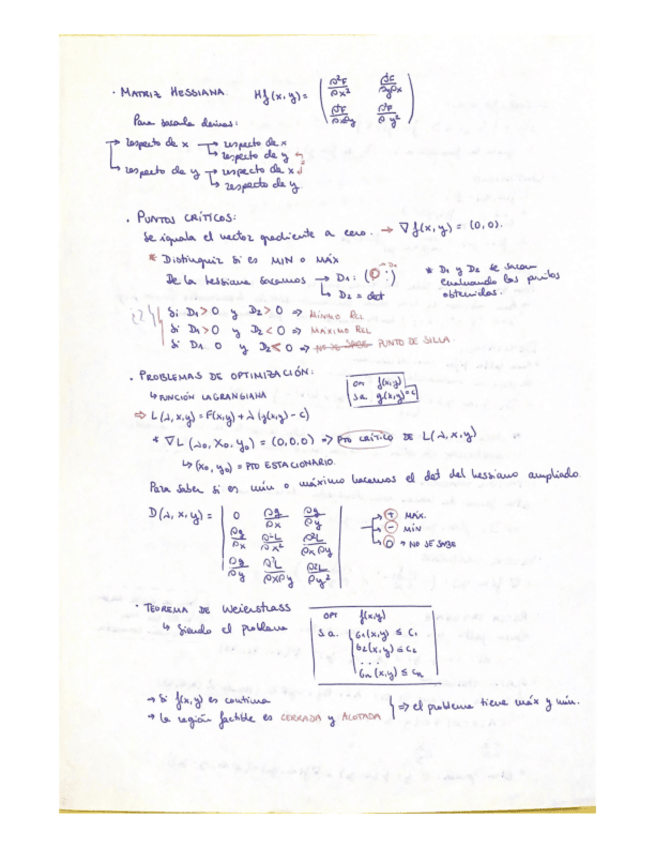 · MATRIZ HESSIANA. Hf(x,y) = ( ∂²F/∂x² ∂²F/∂y∂x
∂²F/∂x∂y ∂²F/∂y² )
Para sacarla derivas:
→ respecto de x → respecto de x
↳ respecto de y
↳ respecto de y → respecto de x
↳ respecto de y.
· PUNTOS CRÍTICOS:
Se iguala el vector gradiente a cero. → ∇f(x,y) = (0,0).
* Distinguir si es MIN o MÁX
De la hessiana sacamos → D1:
↳ D2 = det
* D1 y D2 se sacan
evaluando los puntos
obtenidos.
Si D1 > 0 y D2 > 0 ⇒ MÍNIMO REL
Si D1 > 0 y D2 < 0 ⇒ MÁXIMO REL
Si D1 0 y D2 < 0 ⇒ NO SE SABE PUNTO DE SILLA.
· PROBLEMAS DE OPTIMIZACIÓN:
opt f(x,y)
s.a. g(x,y) = c
↳ FUNCIÓN LAGRANGIANA
⇒ L(λ,x,y) = F(x,y) + λ(g(x,y) - c)
* ∇L (λ0, x0, y0) = (0,0,0) ⇒ PTO CRÍTICO DE L(λ,x,y)
↳ (x0, y0) = PTO ESTACIONARIO.
Para saber si es mín o máximo hacemos el det del hessiano ampliado.
D(λ, x, y) = | 0 ∂g/∂x ∂g/∂y |
| ∂g/∂x ∂²L/∂x² ∂²L/∂x∂y |
| ∂g/∂y ∂²L/∂x∂y ∂²L/∂y² |
+ MÁX.
- MÍN
0 → NO SE SABE
· TEOREMA DE Weierstrass
↳ Siendo el problema
OPT f(x,y)
s.a. G1(x,y) ≤ C1
G2(x,y) ≤ C2
...
Gn(x,y) ≤ Cn
→ Si f(x,y) es continua
→ la región factible es CERRADA y ACOTADA
⇒ el problema tiene máx y mín.